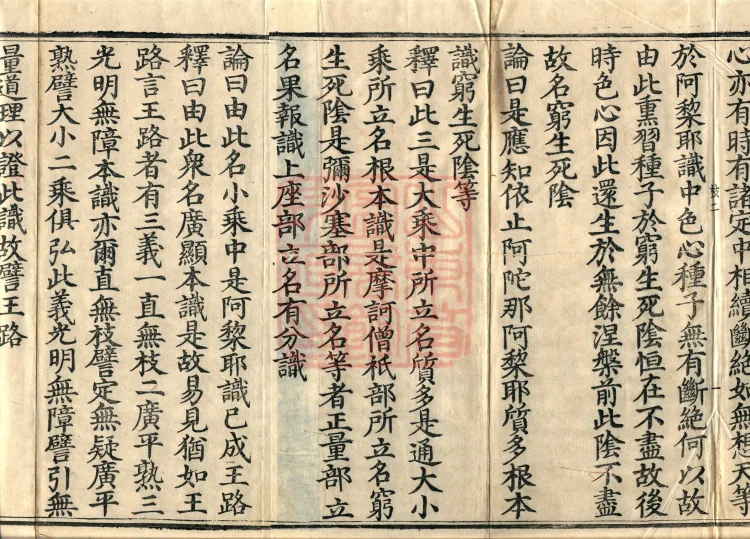 心亦有時有諸定中相續斷絕如無想天等
於阿黎耶識中色心種子無有斷絕何以故
由此熏習種子於窮生死陰恒在不盡故後
時色心因此還生於無餘涅槃前此陰不盡
故名窮生死陰
論曰是應知依止阿陀那阿黎耶質多根本
識窮生死陰等
釋曰此三是大乘中所立名質多是通大小
乘所立名根本識是摩訶僧祇部所立名窮
生死陰是彌沙塞部所立名等者正量部立
名果報識上座部立名有分識
論曰由此名小乘中是阿黎耶識已成王路
釋曰由此眾名廣顯本識是故易見猶如王
路言王路者有三義一直無枝二廣平熟三
光明無障本識亦爾直無枝譬定無疑廣平
熟譬大小二乘俱弘此義光明無障譬引無
量道理以證此識故譬王路